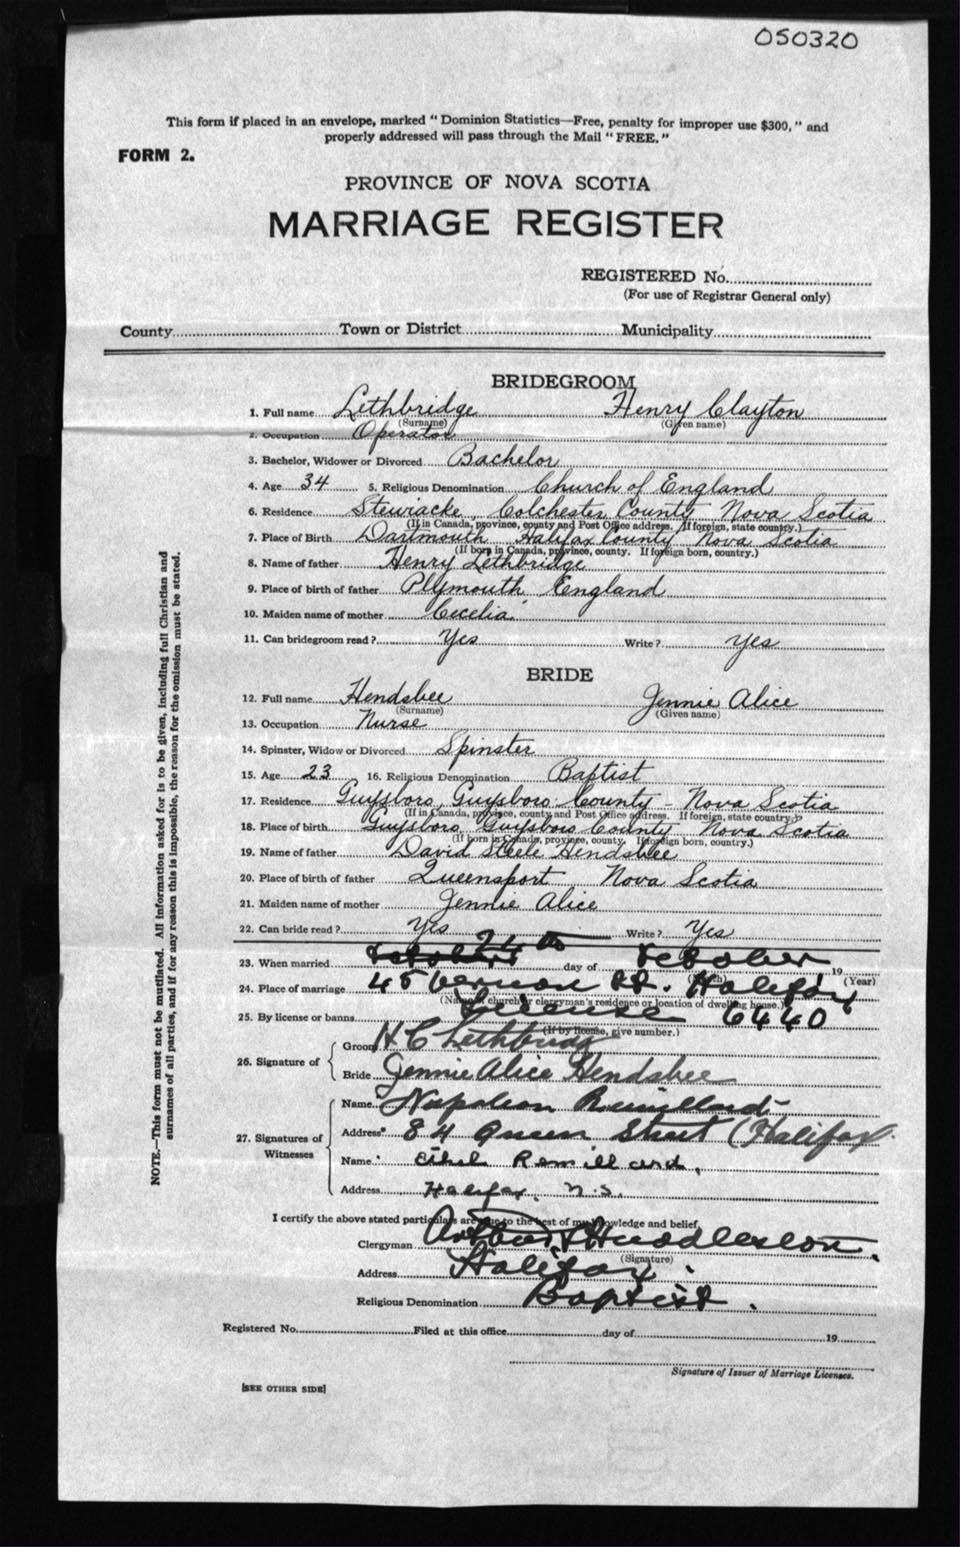 050320
This form if placed in an envelope, marked "Dominion Statistics—Free, penalty for improper use $300," and
properly addressed will pass through the Mail "FREE."
FORM 2.
PROVINCE OF NOVA SCOTIA
MARRIAGE REGISTER
REGISTERED No.
(For use of Registrar General only)
County Town or District Municipality
BRIDEGROOM
1. Full name Lethbridge Henry Clayton
(Surname) (Given name)
2. Occupation Operator
3. Bachelor, Widower or Divorced Bachelor
4. Age 34 5. Religious Denomination Church of England
6. Residence Stewiacke, Colchester County Nova Scotia
(If in Canada, province, county and Post Office address. If foreign, state country.)
7. Place of Birth Dartmouth Halifax County Nova Scotia
(If born in Canada, province, county. If foreign born, country.)
8. Name of father Henry Lethbridge
9. Place of birth of father Plymouth England
10. Maiden name of mother Cecelia
11. Can bridegroom read? Yes Write? Yes
BRIDE
12. Full name Hendsbee Jennie Alice
(Surname) (Given name)
13. Occupation Nurse
14. Spinster, Widow or Divorced Spinster
15. Age 23 16. Religious Denomination Baptist
17. Residence Guysboro, Guysboro County - Nova Scotia
(If in Canada, province, county and Post Office address. If foreign, state country.)
18. Place of birth Guysboro Guysboro County Nova Scotia
(If born in Canada, province, county. If foreign born, country.)
19. Name of father David Steele Hendsbee
20. Place of birth of father Queensport Nova Scotia
21. Maiden name of mother Jennie Alice
22. Can bride read? Yes Write? Yes
23. When married day of October 19
(Year)
24. Place of marriage 45 Vernon St. Halifax
(Name of church or clergyman's residence or location of dwelling house.)
25. By license or banns License 6440
(If by license, give number.)
26. Signature of
Groom H C Lethbridge
Bride Jennie Alice Hendsbee
27. Signatures of Witnesses
Name Napoleon Remillard
Address 84 Queen Street (Halifax
Name Ethel Remillard,
Address Halifax, N.S.
I certify the above stated particulars are true to the best of my knowledge and belief.
Clergyman Huddleston.
(Signature)
Address Halifax.
Religious Denomination Baptist.
Registered No. Filed at this office day of 19
Signature of Issuer of Marriage Licenses.
[SEE OTHER SIDE]
NOTE.—This form must not be mutilated. All information asked for is to be given, including full Christian and
surnames of all parties, and if for any reason this is impossible, the reason for the omission must be stated.